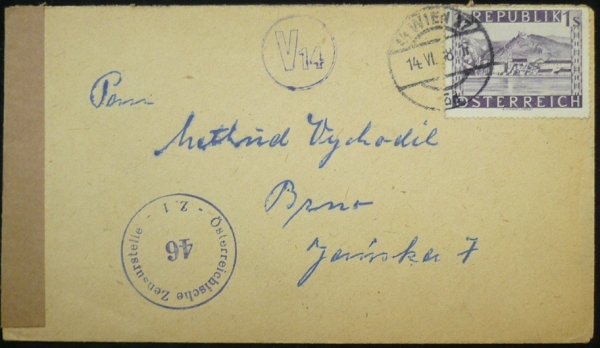 V14
WIEN 17
14.VI.
REPUBLIK 1S
ÖSTERREICH
Panu
Methud Vychodil
Brno
7
Österreichische Zensurstelle - Z.I -
46